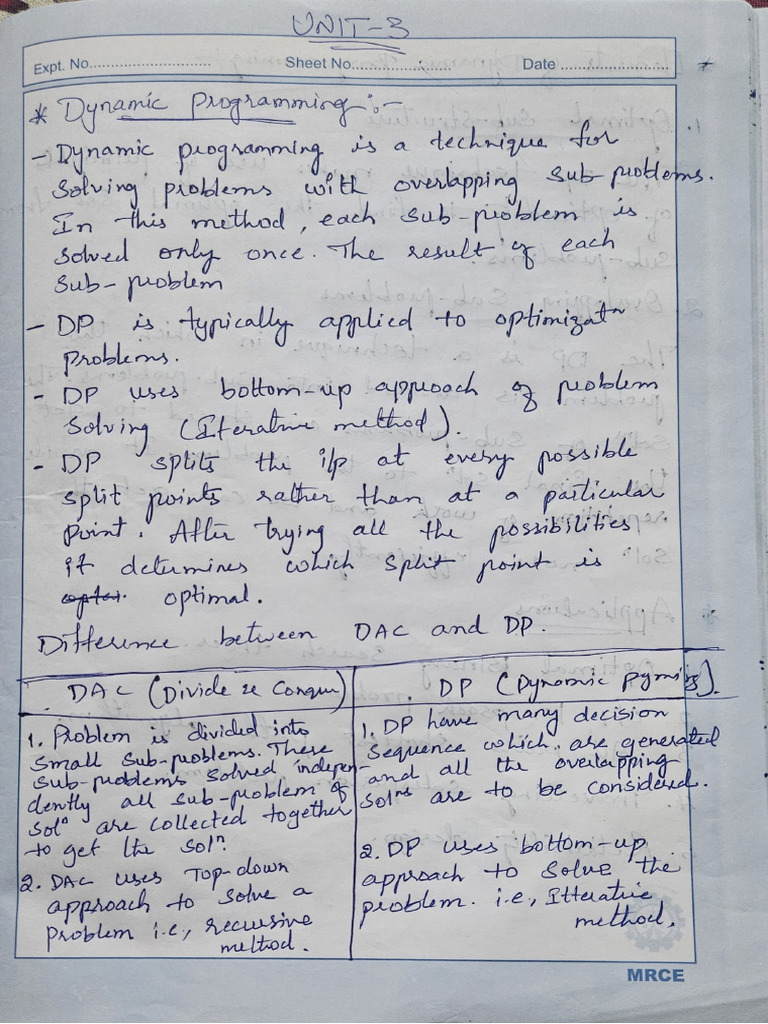 UNIT-3
Expt. No.............................. Sheet No......................... Date ...........................
* Dynamic Programming :-
- Dynamic programming is a technique for
solving problems with overlapping sub-problems.
In this method, each sub-problem is
solved only once. The result of each
sub-problem
- DP is typically applied to optimizatn
problems.
- DP uses bottom-up approach of problem
solving (Iterative method).
- DP splits the i/p at every possible
split points rather than at a particular
point. After trying all the possibilities
it determines which split point is
optimal.
Difference between DAC and DP.
DAC (Divide & Conquer)
1. Problem is divided into
small sub-problems. These
sub-problems solved indepen-
dently all sub-problem of
soln are collected together
to get the soln.
2. DAC uses Top-down
approach to solve a
problem i.e., recursive
method.
DP (Dynamic pgming).
1. DP have many decision
sequence which are generated
and all the overlapping
solns are to be considered.
2. DP uses bottom-up
approach to solve the
problem. i.e., Itterative
method.
MRCE